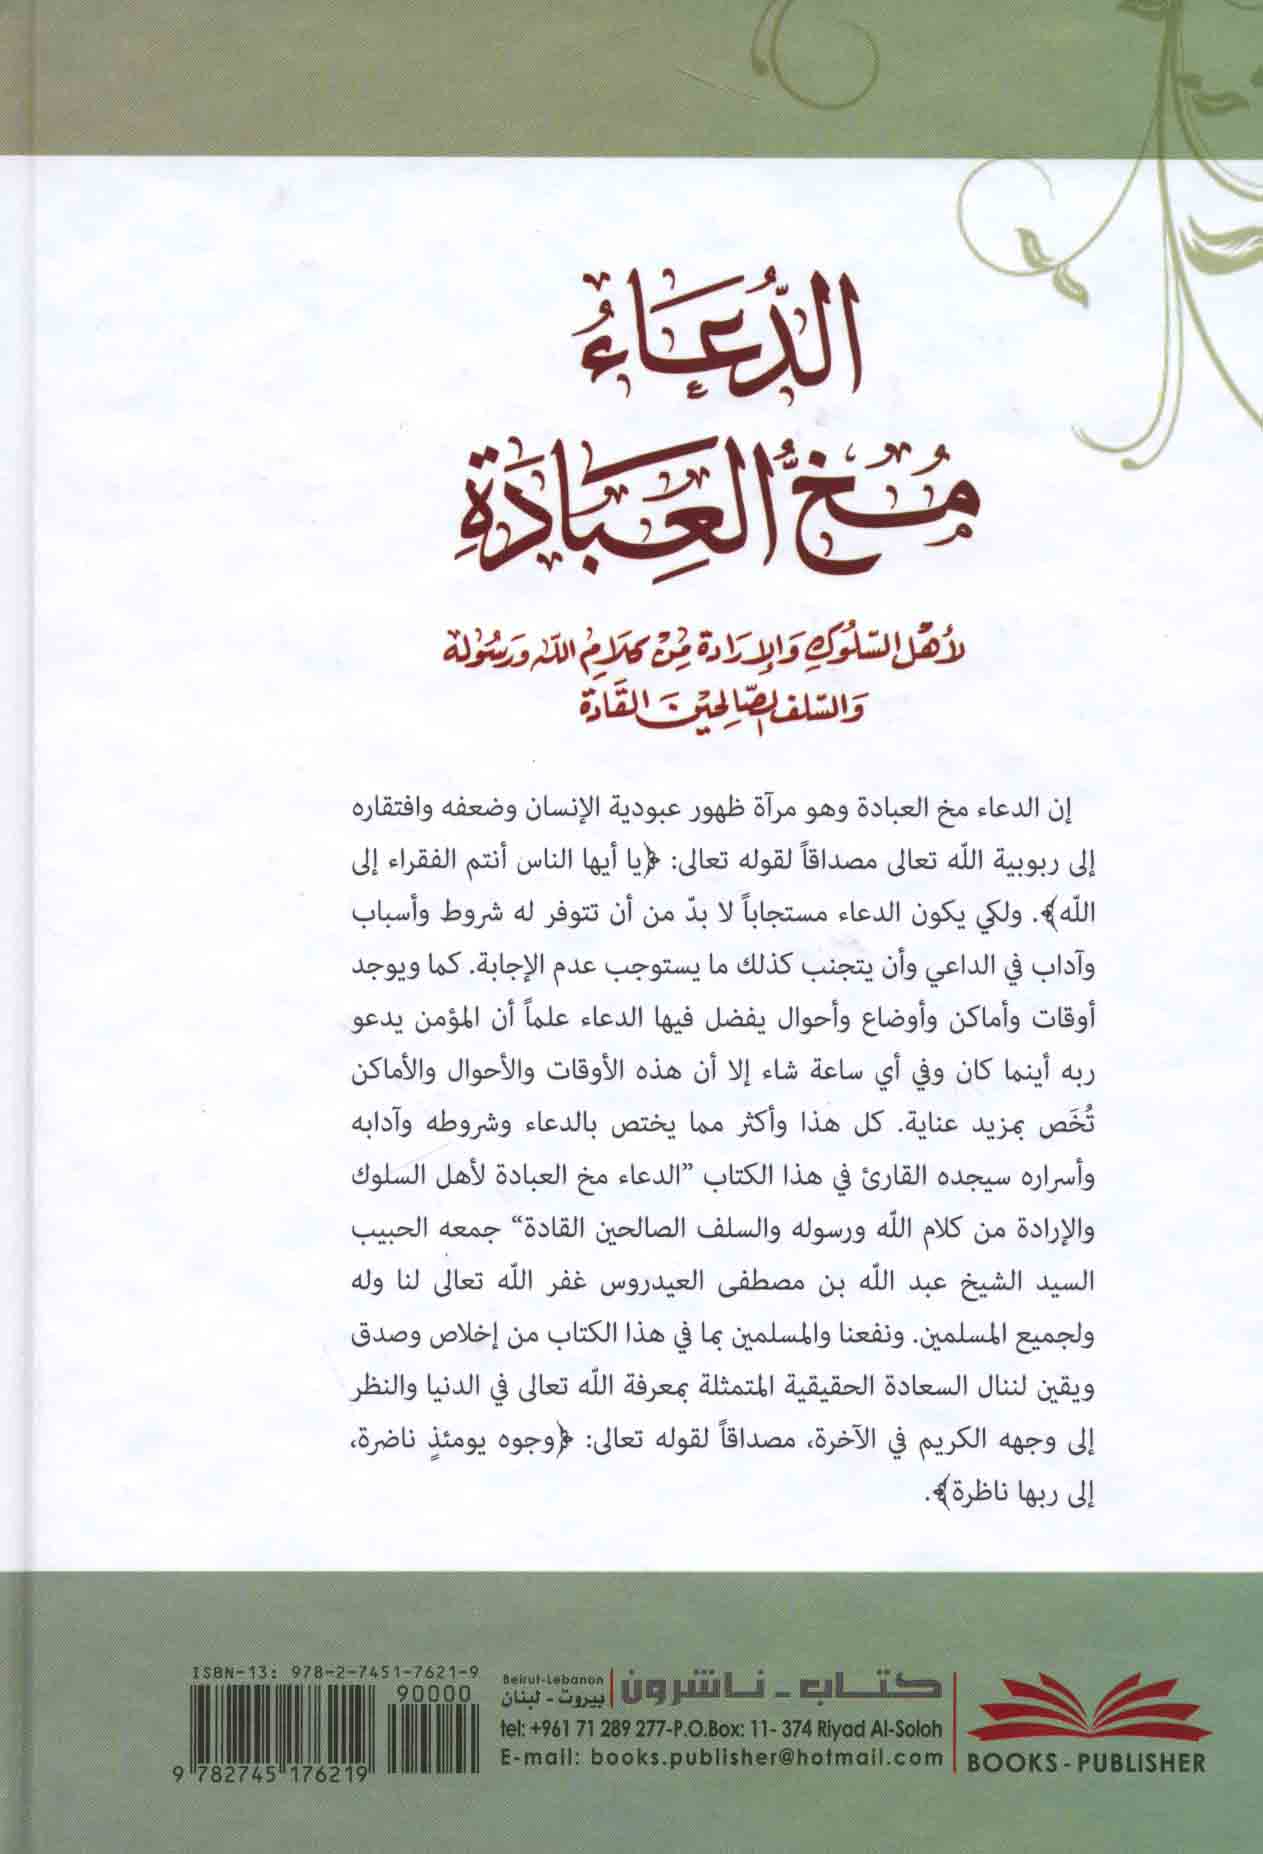 الدُّعَاءُ
مُخُّ العِبَادَةِ
لأهْل السّلُوكِ وَالإرَادة مِنْ كلَامِ اللّه وَرَسُوله
وَالسّلف الصّالِحين القَادَة
إن الدعاء مخ العبادة وهو مرآة ظهور عبودية الإنسان وضعفه وافتقاره
إلى ربوبية اللّه تعالى مصداقاً لقوله تعالى: ﴿يا أيها الناس أنتم الفقراء إلى
اللّه﴾. ولكي يكون الدعاء مستجاباً لا بدّ من أن تتوفر له شروط وأسباب
وآداب في الداعي وأن يتجنب كذلك ما يستوجب عدم الإجابة. كما ويوجد
أوقات وأماكن وأوضاع وأحوال يفضل فيها الدعاء علماً أن المؤمن يدعو
ربه أينما كان وفي أي ساعة شاء إلا أن هذه الأوقات والأحوال والأماكن
تُخَص بمزيد عناية. كل هذا وأكثر مما يختص بالدعاء وشروطه وآدابه
وأسراره سيجده القارئ في هذا الكتاب ”الدعاء مخ العبادة لأهل السلوك
والإرادة من كلام اللّه ورسوله والسلف الصالحين القادة“ جمعه الحبيب
السيد الشيخ عبد اللّه بن مصطفى العيدروس غفر اللّه تعالى لنا وله
ولجميع المسلمين. ونفعنا والمسلمين بما في هذا الكتاب من إخلاص وصدق
ويقين لننال السعادة الحقيقية المتمثلة بمعرفة اللّه تعالى في الدنيا والنظر
إلى وجهه الكريم في الآخرة، مصداقاً لقوله تعالى: ﴿وجوه يومئذٍ ناضرة،
إلى ربها ناظرة﴾.
ISBN-13: 978-2-7451-7621-9
90000
9 782745 176219
كتاب - ناشرون
Beirut-Lebanon
بيروت - لبنان
tel: +961 71 289 277-P.O.Box: 11- 374 Riyad Al-Soloh
E-mail: books.publisher@hotmail.com
BOOKS - PUBLISHER